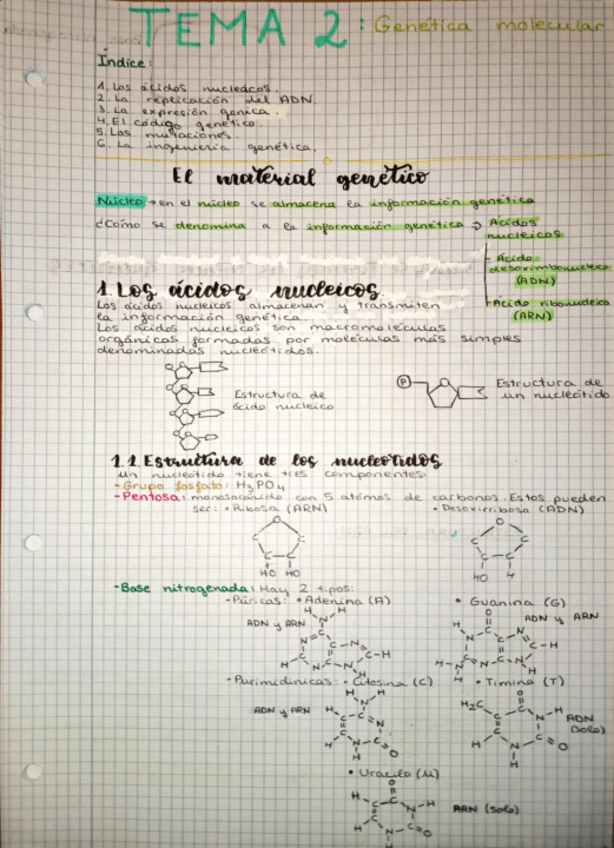 TEMA 2: Genética molecular
Índice:
1. Los ácidos nucleicos.
2. La replicación del ADN.
3. La expresión génica.
4. El código genético.
5. Las mutaciones.
6. La ingeniería genética.
El material genético
Núcleo → en el núcleo se almacena la información genética
¿Cómo se denomina a la información genética → Ácidos
nucleicos
- Ácido
desoxirribonucleico
(ADN)
- Ácido ribonucleico
(ARN)
1. Los ácidos nucleicos.
Los ácidos nucleicos almacenan y transmiten
la información genética.
Los ácidos nucleicos son macromoléculas
orgánicas formadas por moléculas más simples
denominadas nucleótidos.
Estructura de
ácido nucleico
P
Estructura de
un nucleótido
1.1. Estructura de los nucleótidos
Un nucleótido tiene tres componentes:
- Grupo fosfato: H3PO4
- Pentosa: monosacárido con 5 átomos de carbonos. Estos pueden
ser: • Ribosa (ARN) • Desoxirribosa (ADN)
O
C C
C C
HO HO
O
C C
C C
HO H
- Base nitrogenada: Hay 2 tipos:
- Púricas: • Adenina (A) • Guanina (G)
ADN y ARN
ADN y ARN
- Purimidínicas: • Citosina (C) • Timina (T)
ADN y ARN
H2C
ADN
(solo)
• Uracilo (U)
ARN (solo)